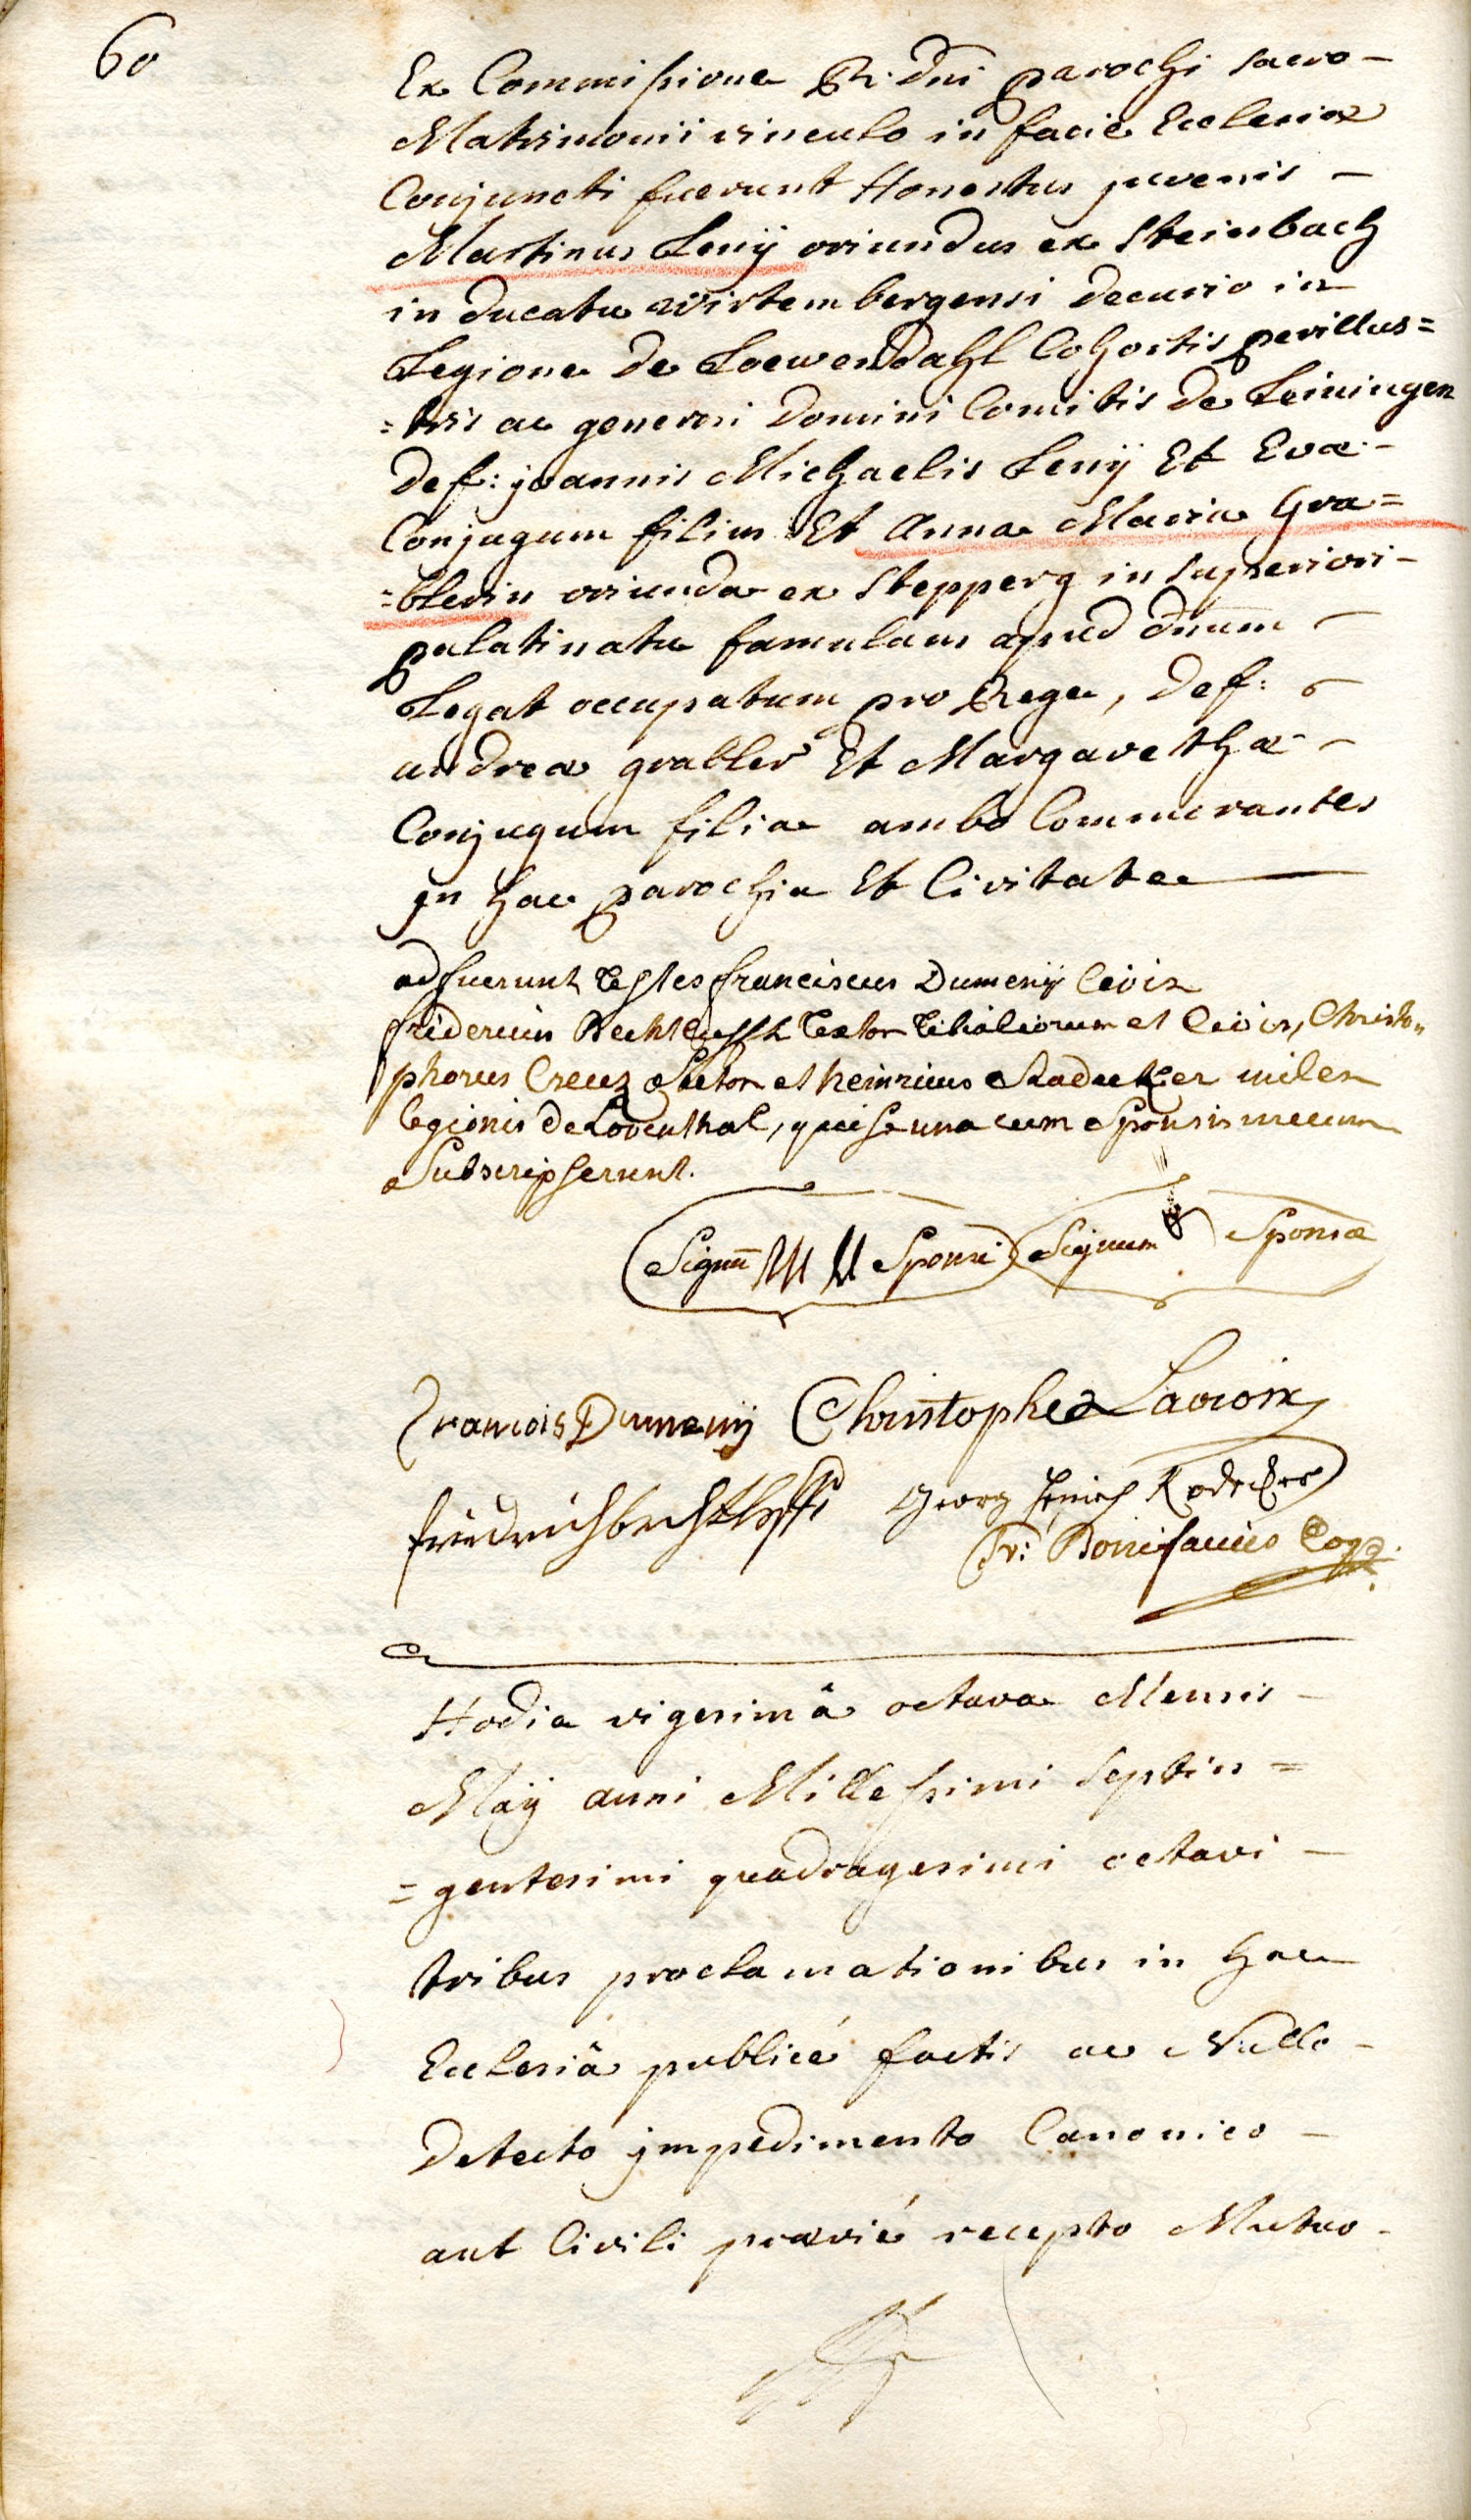 60
Ex Commissione R: Dni parochi sacro –
Matrimonii vinculo in facie Ecclesiæ
Conjuncti fuerunt Honestus juvenis –
Martinus Lenÿ oriundus ex Steinbach
in ducatu wirtembergensi decurio in
Legione de Loewendahl Cohortis perillus=
=tris ac generosi Domini Comitis de Leiningen
def: joannis Michaelis Lenÿ Et Evæ –
Conjugum filius Et Anna Maria Gra=
=blerin oriunda ex Stepperg in superiori –
palatinatu famulans apud dnum –
Legat occupatum pro Rege, def: –
andreæ grabler Et Margarethæ –
Conjugum filia ambo Commorantes
in hac parochia Et Civitate
adfuerunt testes franciscus Dumenÿ Civis
fridericus textor et Civis, Christo„
phorus Creuz Sutor et heinricus Radecker miles
legionis de Loventhal, qui se una cum Sponsis mecum
Subscripserunt.
Signu Sponsi Signum Sponsæ
Francois Dumenÿ Christophe Lacroix
friedrich Georg Henrich Radecker
Fr: Bonifacius Cop.
Hodie vigesimâ octava Mensis –
Maÿ anni Millessimi septin =
= gentesimi quadragesimi octavi –
tribus proclamationibus in hac
Ecclesiâ publicé factis ac Nullo –
detecto jmpedimento Canonico –
aut Civili prævié recepto Mutuo –